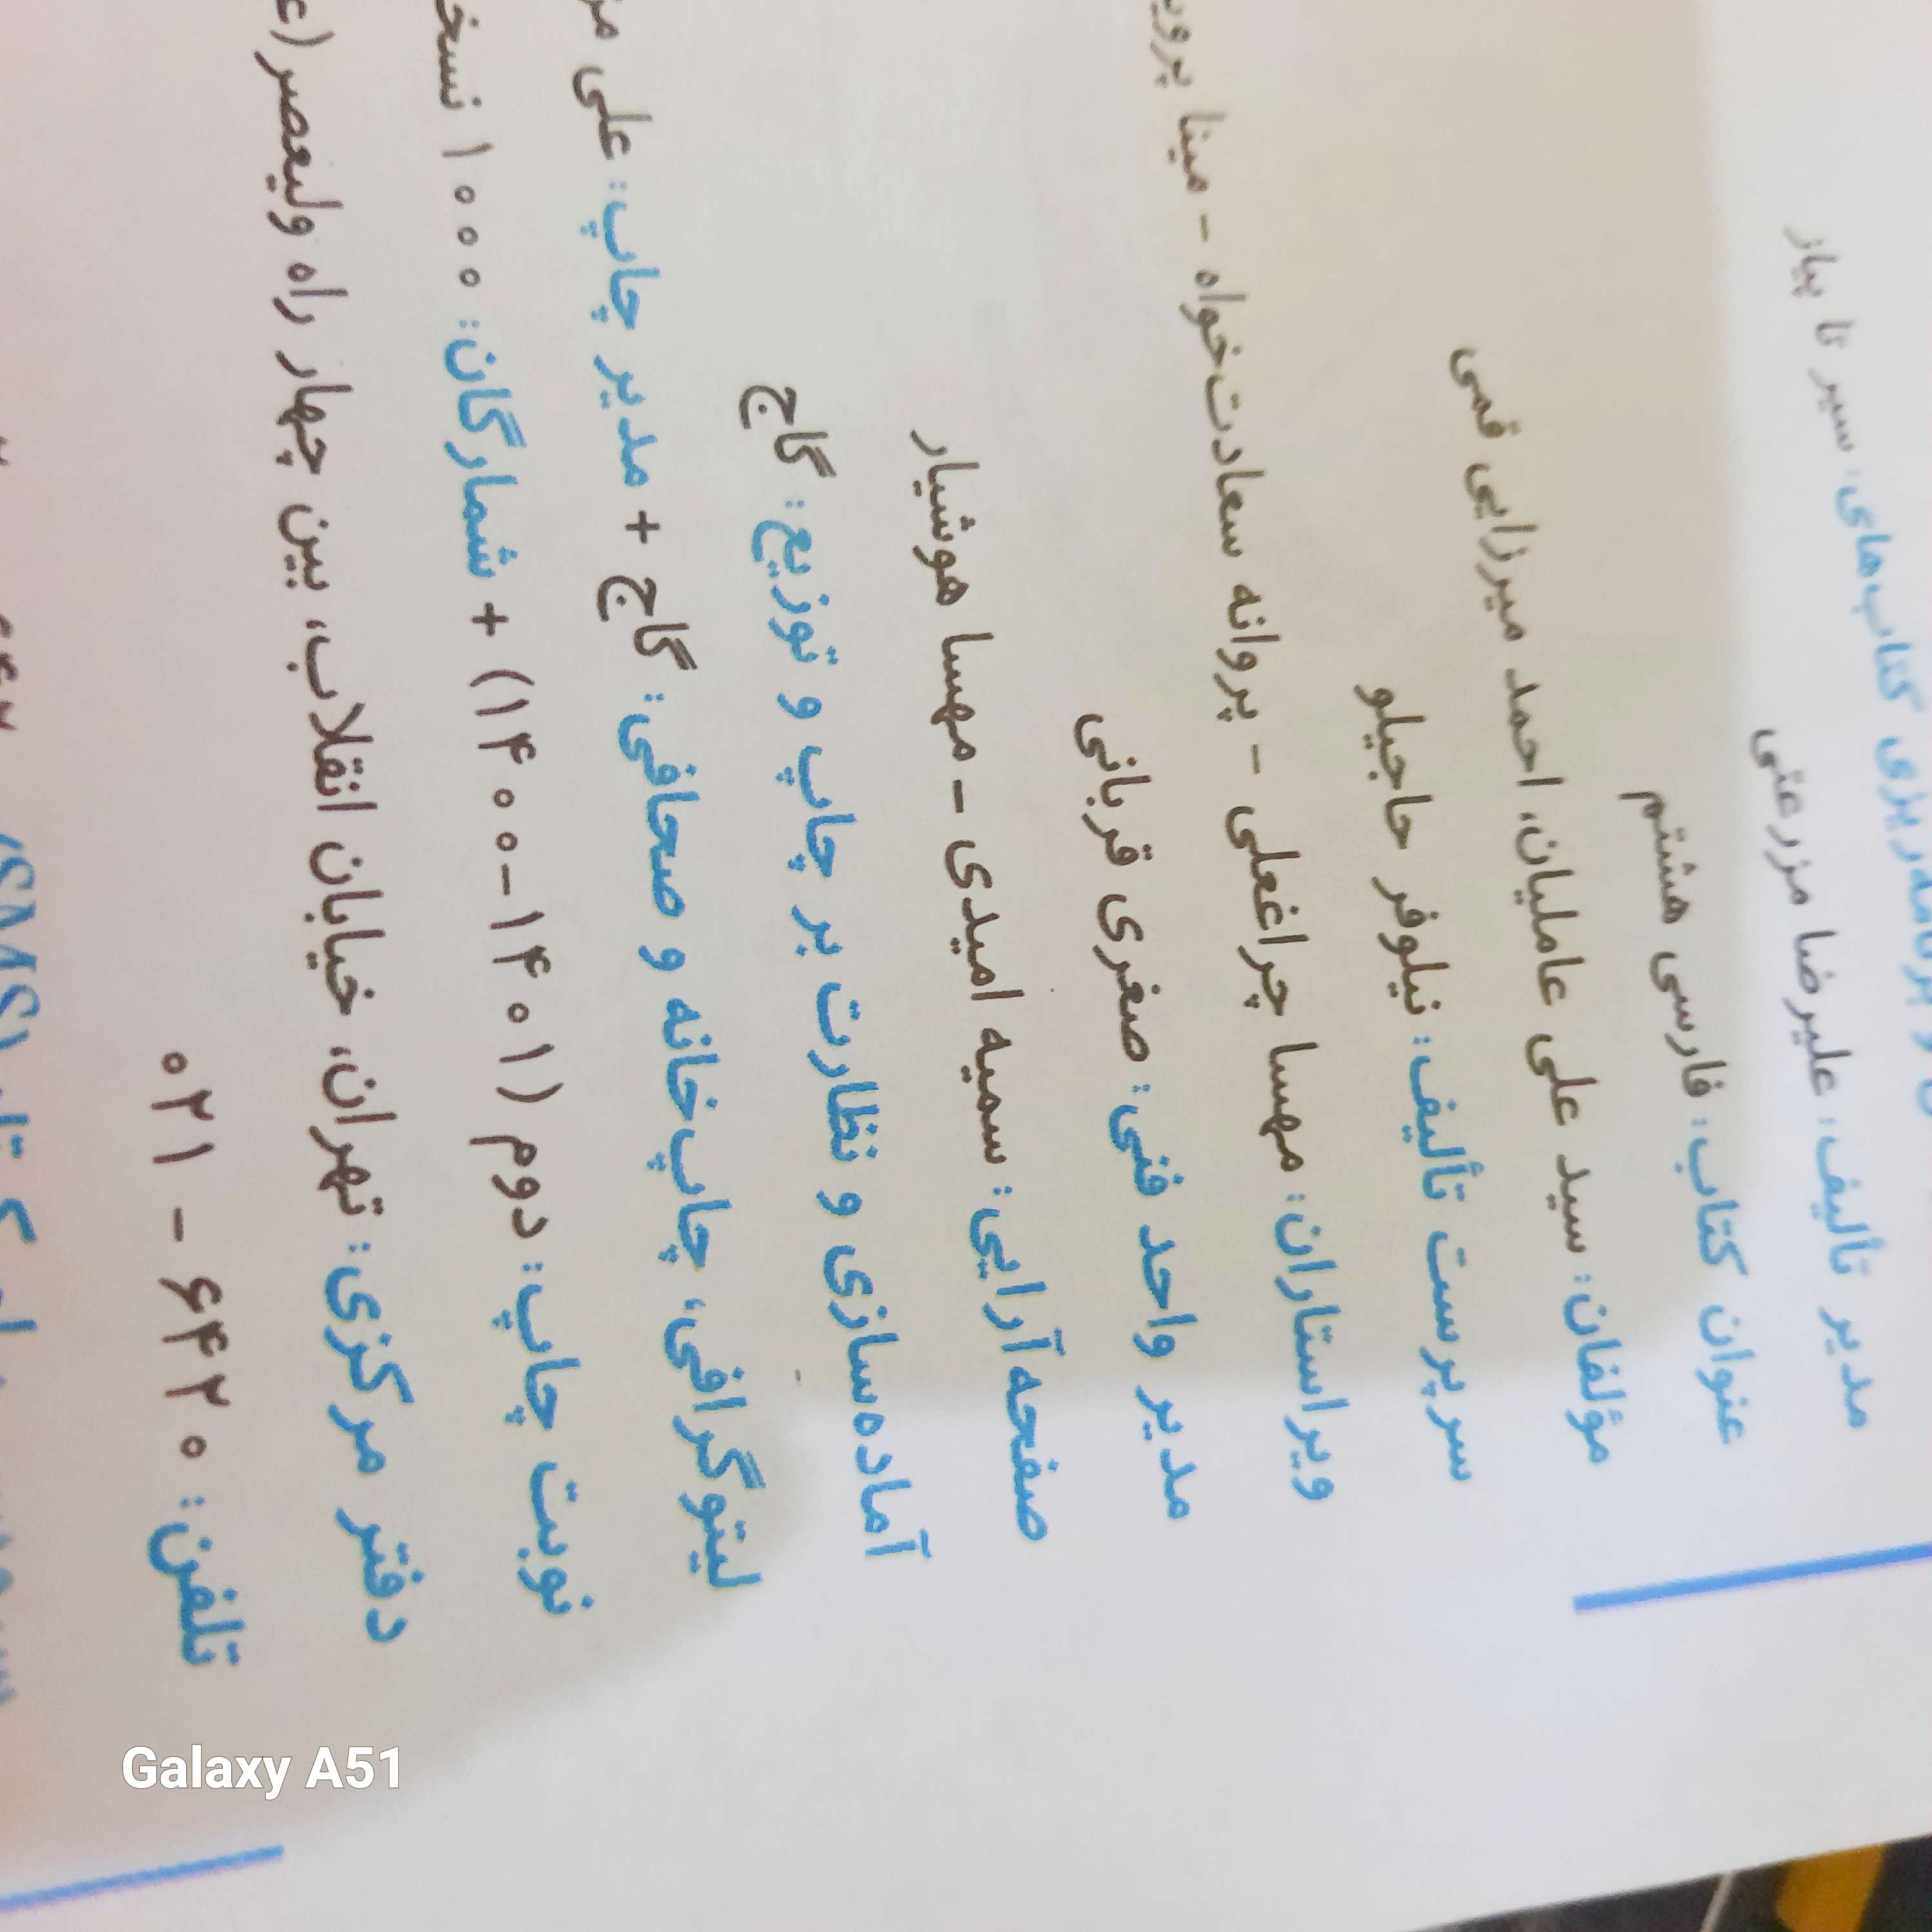 و برنامه‌ریزی کتاب‌های: سیر تا پیاز
مدیر تألیف: علیرضا مزرعتی
عنوان کتاب: فارسی هشتم
مؤلفان: سید علی عاملیان، احمد میرزایی قمی
سرپرست تألیف: نیلوفر حاجیلو
ویراستاران: مهسا چراغعلی - پروانه سعادت‌خواه - مینا
مدیر واحد فنی: صغری قربانی
صفحه‌آرایی: سمیه امیدی - مهسا هوشیار
آماده‌سازی و نظارت بر چاپ و توزیع: گاج
لیتوگرافی، چاپ‌خانه و صحافی: گاج + مدیر چاپ: علی
نوبت چاپ: دوم (۱۴۰۱-۱۴۰۰) + شمارگان: ۱۰۰۰
دفتر مرکزی: تهران، خیابان انقلاب، بین چهار راه ولیعصر
تلفن: ۶۴۲۰ - ۰۲۱
(SMS)
Galaxy A51